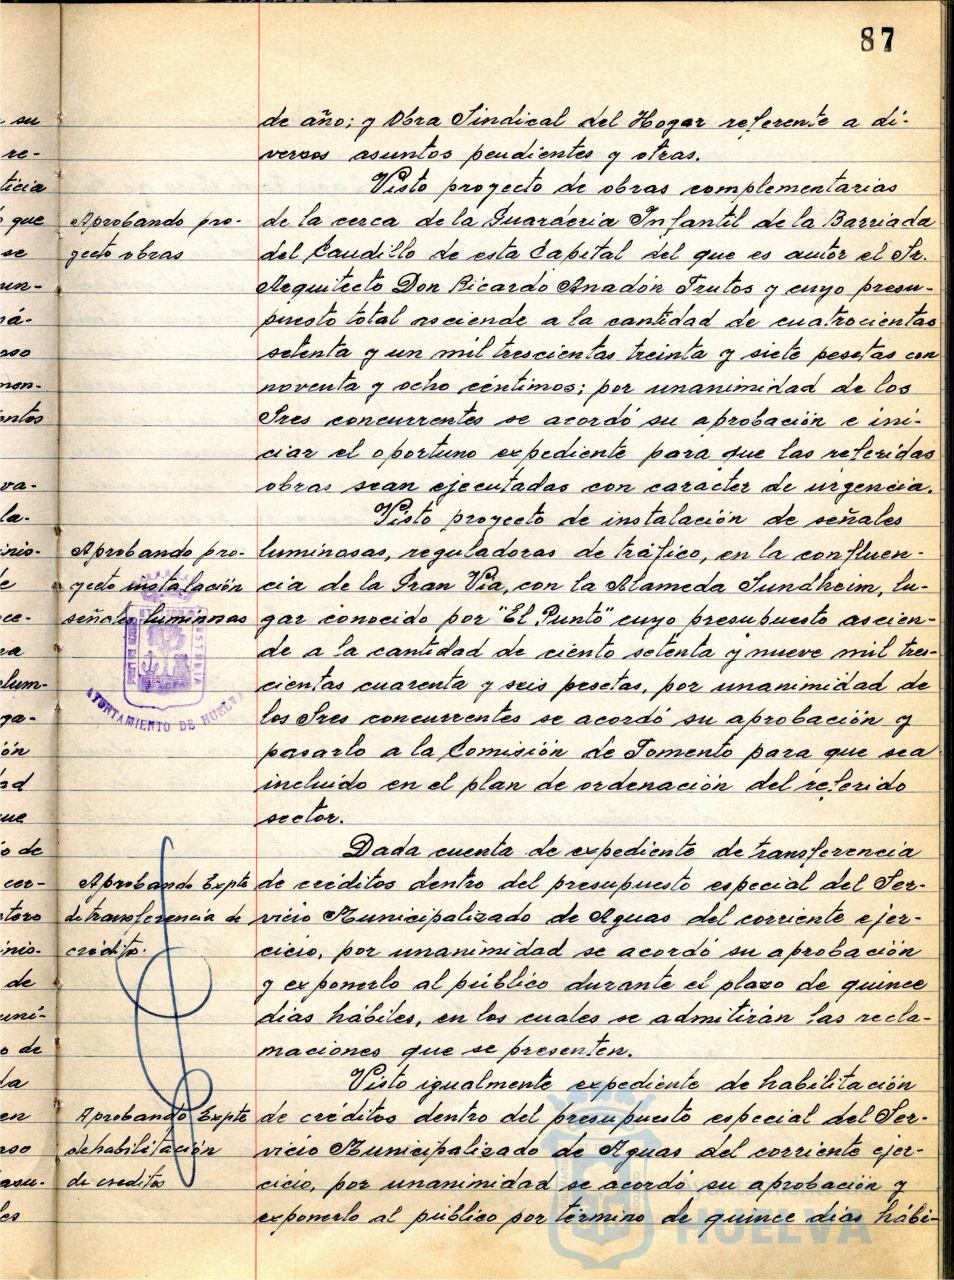 87
de año; y Obra Sindical del Hogar referente a di-
versos asuntos pendientes y otras.
Visto proyecto de obras complementarias
Aprobando pro-
de la cerca de la Guardería Infantil de la Barriada
yecto obras
del Caudillo de esta Capital del que es autor el Sr.
Arquitecto Don Ricardo Anadón Frutos y cuyo presu-
puesto total asciende a la cantidad de cuatrocientas
setenta y un mil trescientas treinta y siete pesetas con
noventa y ocho céntimos; por unanimidad de los
Sres concurrentes se acordó su aprobación e ini-
ciar el oportuno expediente para que las referidas
obras sean ejecutadas con caracter de urgencia.
Visto proyecto de instalación de señales
Aprobando pro-
luminosas, reguladoras de tráfico, en la confluen-
yecto instalación
cia de la Gran Via, con la Alameda Sundheim, lu-
señales luminosas
gar conocido por "El Punto" cuyo presupuesto ascien-
de a la cantidad de ciento setenta y nueve mil tres-
cientas cuarenta y seis pesetas, por unanimidad de
los Sres concurrentes se acordó su aprobación y
AYUNTAMIENTO DE HUELVA
pasarlo a la Comisión de Fomento para que sea
incluido en el plan de ordenación del referido
sector.
Dada cuenta de expediente de transferencia
Aprobando Expte
de créditos dentro del presupuesto especial del Ser-
de transferencia de
vicio Municipalizado de Aguas del corriente ejer-
crédito.
cicio, por unanimidad se acordó su aprobación
y exponerlo al público durante el plazo de quince
dias hábiles, en los cuales se admitirán las recla-
maciones que se presenten.
Visto igualmente expediente de habilitación
Aprobando Expte
de créditos dentro del presupuesto especial del Ser-
de habilitación
vicio Municipalizado de Aguas del corriente ejer-
de creditos
cicio, por unanimidad se acordó su aprobación y
exponerlo al público por término de quince dias hábi-
HUELVA